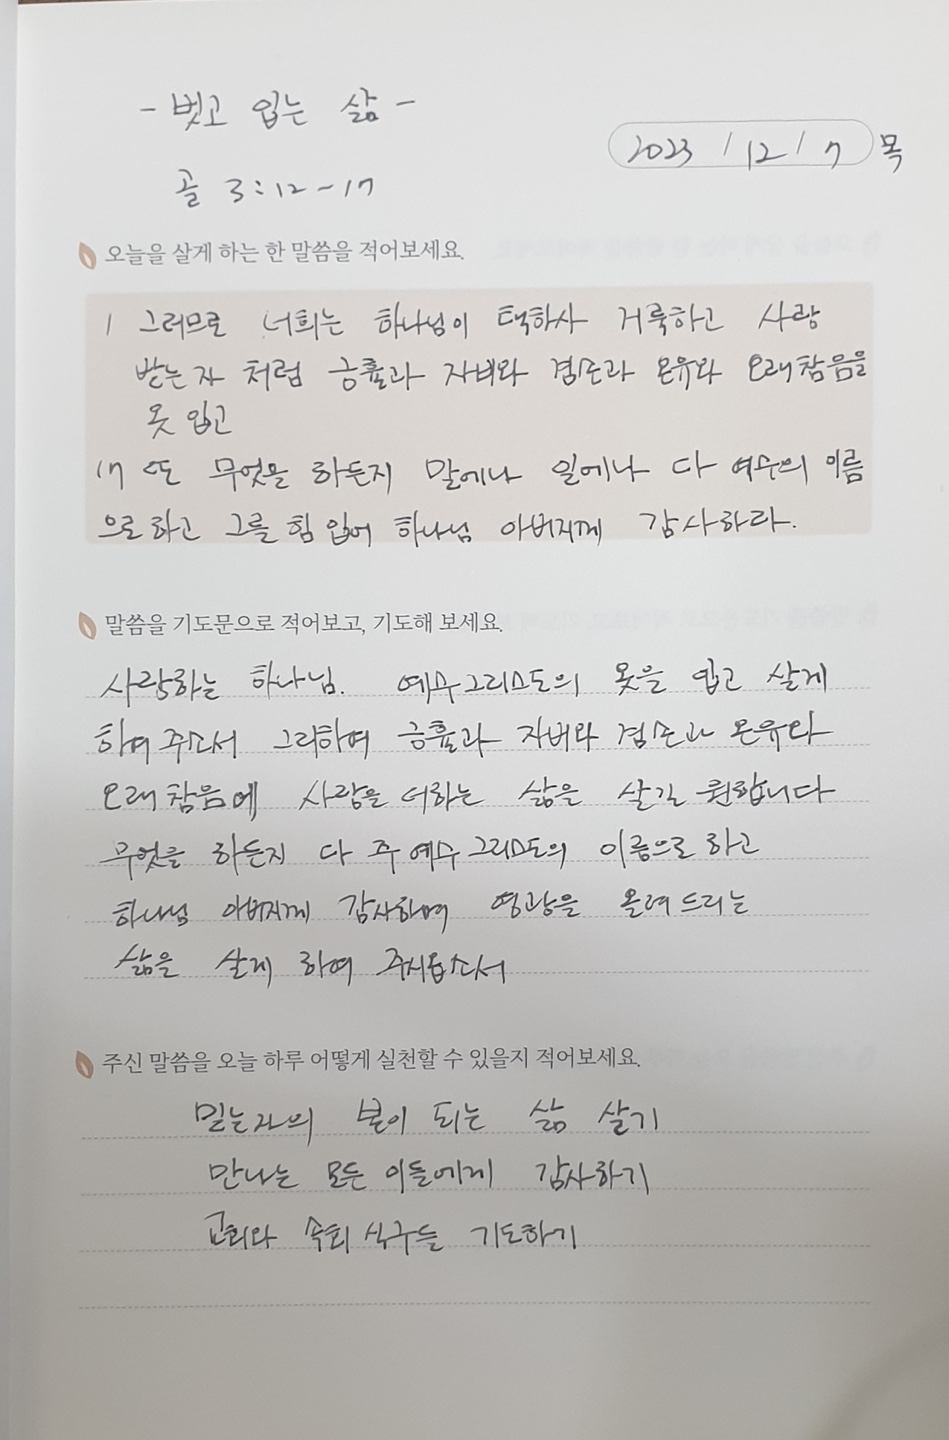 - 벗고 입는 삶 -
2023 / 12 / 7 목
골 3:12-17
오늘을 살게 하는 한 말씀을 적어보세요.
1 그러므로 너희는 하나님이 택하사 거룩하고 사랑
받는자 처럼 긍휼과 자비와 겸손과 온유와 오래참음을
옷 입고
17 또 무엇을 하든지 말에나 일에나 다 예수의 이름
으로하고 그를 힘입어 하나님 아버지께 감사하라.
말씀을 기도문으로 적어보고, 기도해 보세요.
사랑하는 하나님. 예수그리스도의 옷을 입고 살게
하여주소서 그리하여 긍휼과 자비와 겸손과 온유와
오래참음에 사랑을 더하는 삶을 살길 원합니다
무엇을 하든지 다 주 예수 그리스도의 이름으로 하고
하나님 아버지께 감사하며 영광을 올려드리는
삶을 살게 하여 주시옵소서
주신 말씀을 오늘 하루 어떻게 실천할 수 있을지 적어보세요.
믿는자의 본이 되는 삶 살기
만나는 모든 이들에게 감사하기
교회와 속회식구들 기도하기